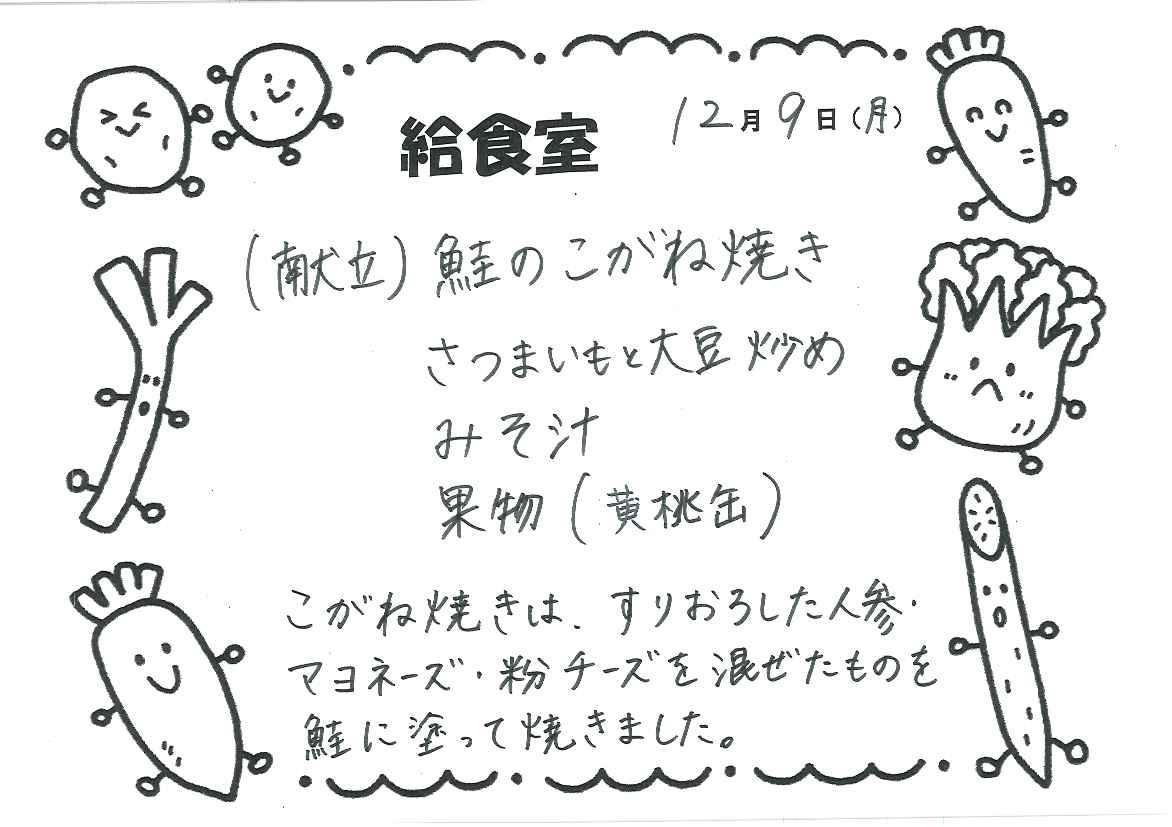 給食室 12月9日(月)
(献立)鮭のこがね焼き
さつまいもと大豆炒め
みそ汁
果物(黄桃缶)
こがね焼きは、すりおろした人参・
マヨネーズ・粉チーズを混ぜたものを
鮭に塗って焼きました。